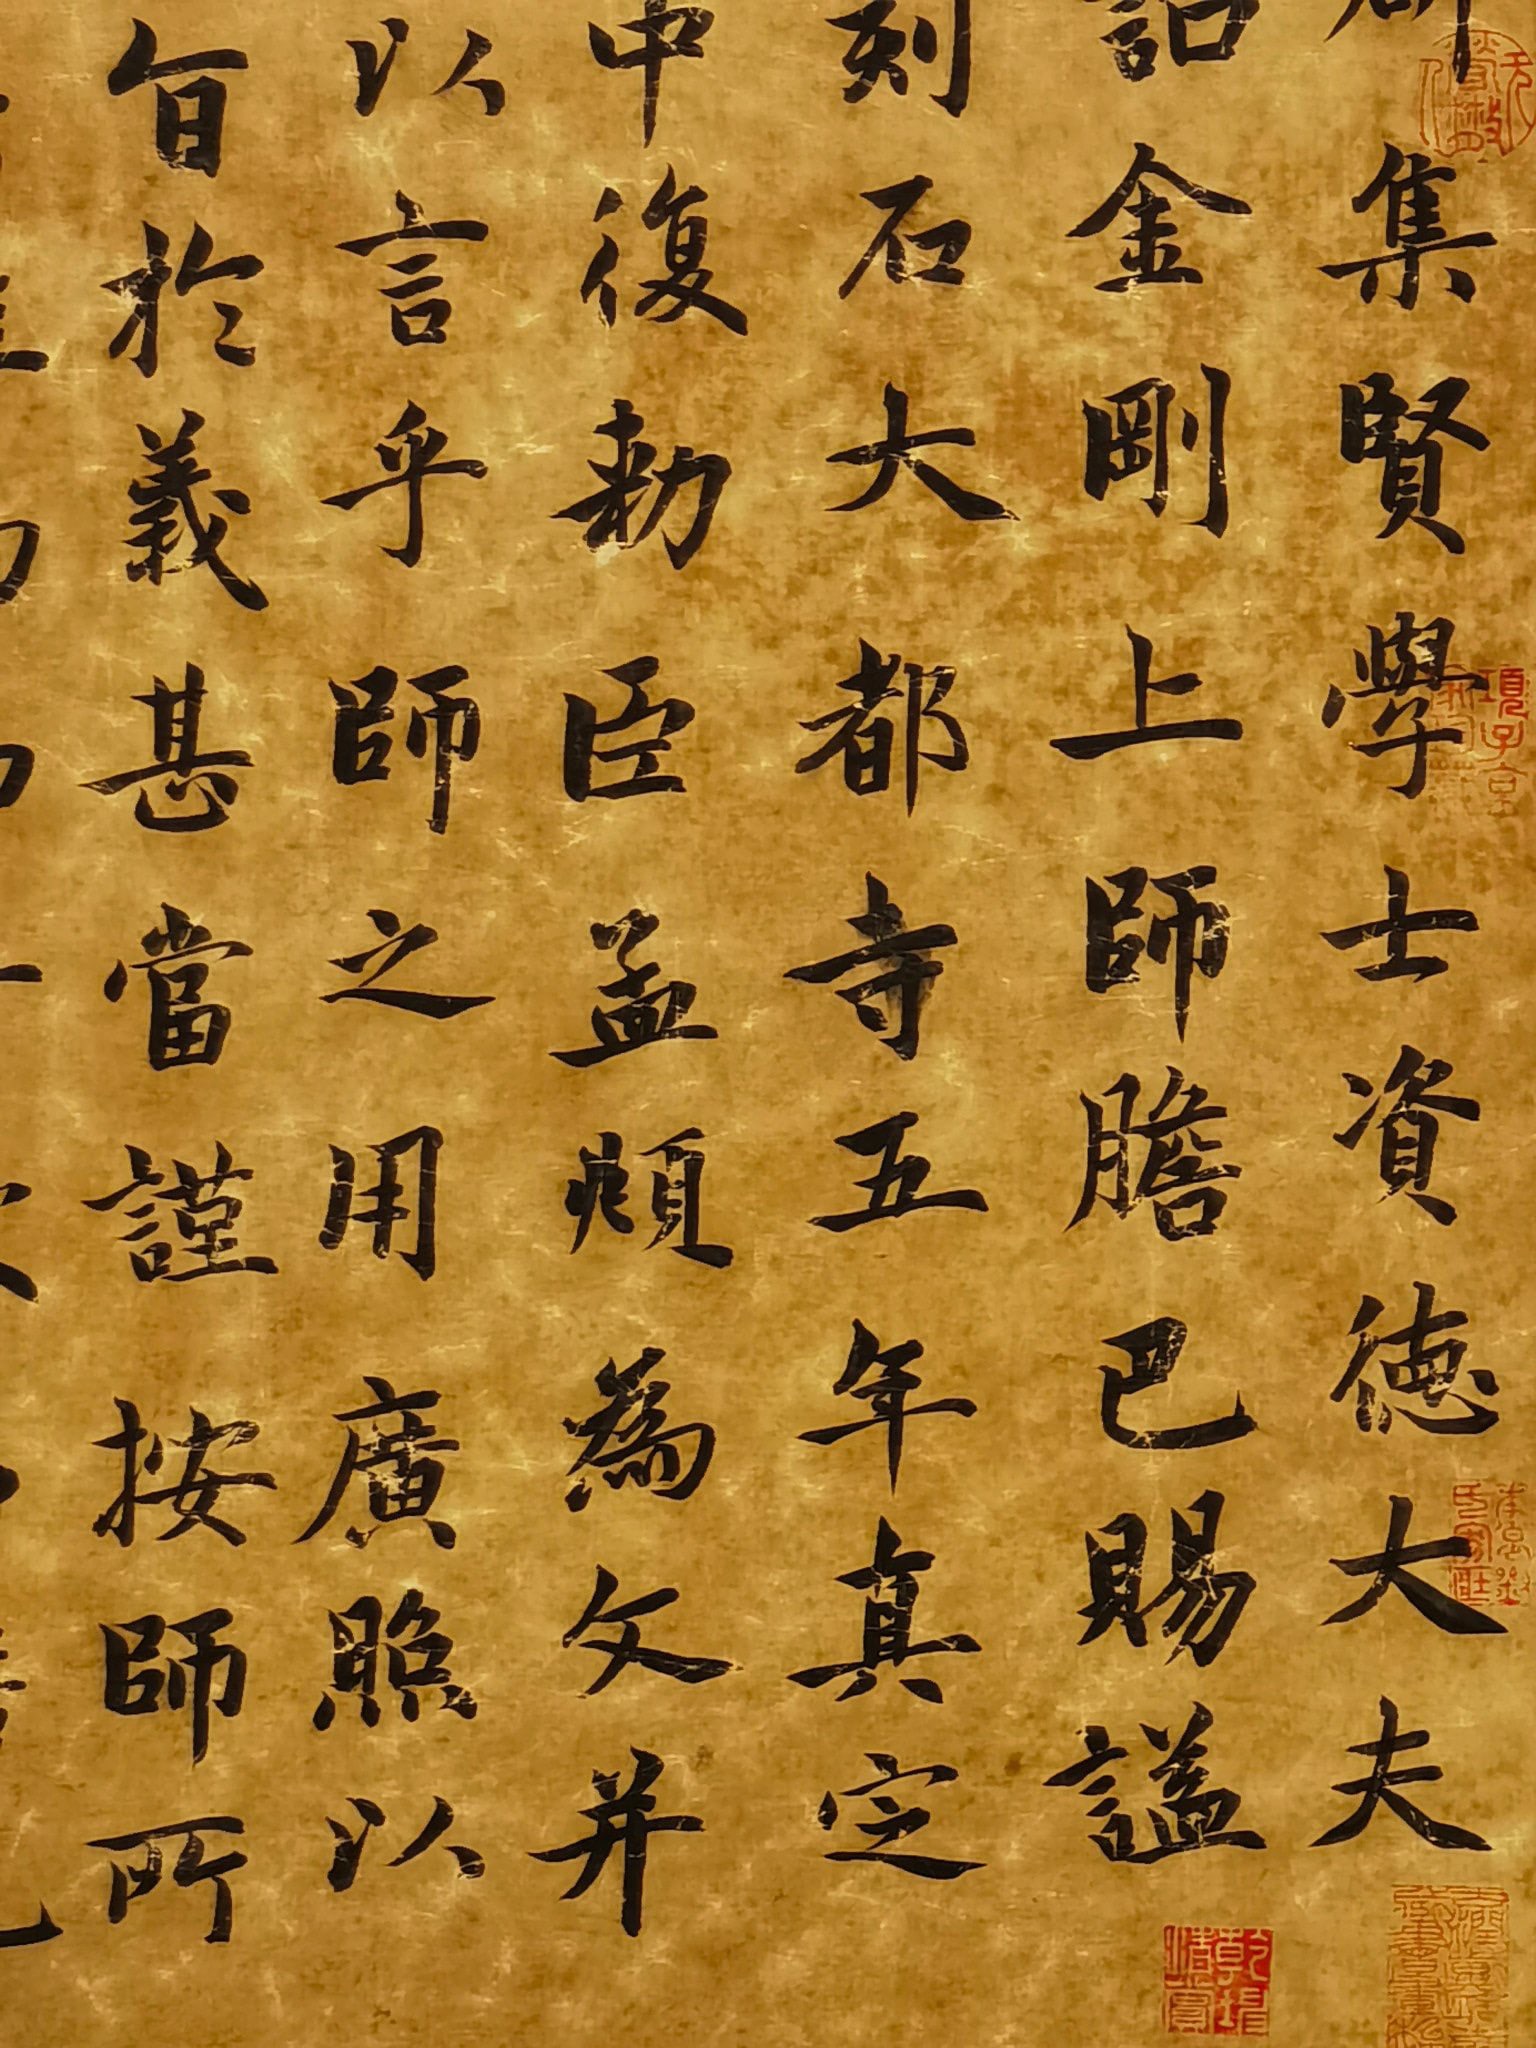 集賢學士資德大夫
詔金剛上師膽巴賜謚
刻石大都寺五年真定
中復勅臣孟頫為文并
以言乎師之用廣照以
旨於義甚當謹按師所
項子京
乾坤清賞